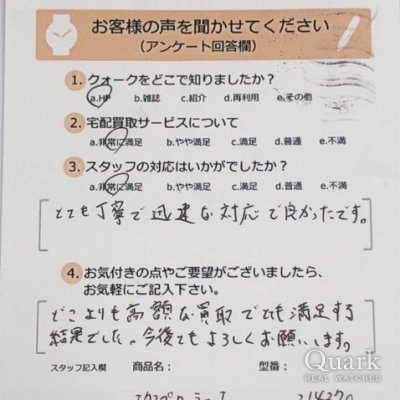 お客様の声を聞かせてください
(アンケート回答欄)
1. クォークをどこで知りましたか?
a.HP b.雑誌 c.紹介 d.再利用 e.その他
2. 宅配買取サービスについて
a.非常に満足 b.やや満足 c.満足 d.普通 e.不満
3. スタッフの対応はいかがでしたか?
a.非常に満足 b.やや満足 c.満足 d.普通 e.不満
とても丁寧で迅速な対応で良かったです。
4. お気付きの点やご要望がございましたら、
お気軽にご記入下さい。
どこよりも高額な買取でとても満足する
結果でした。今後ともよろしくお願いします。
スタッフ記入欄 商品名: 型番:
Quark
REAL WATCHES